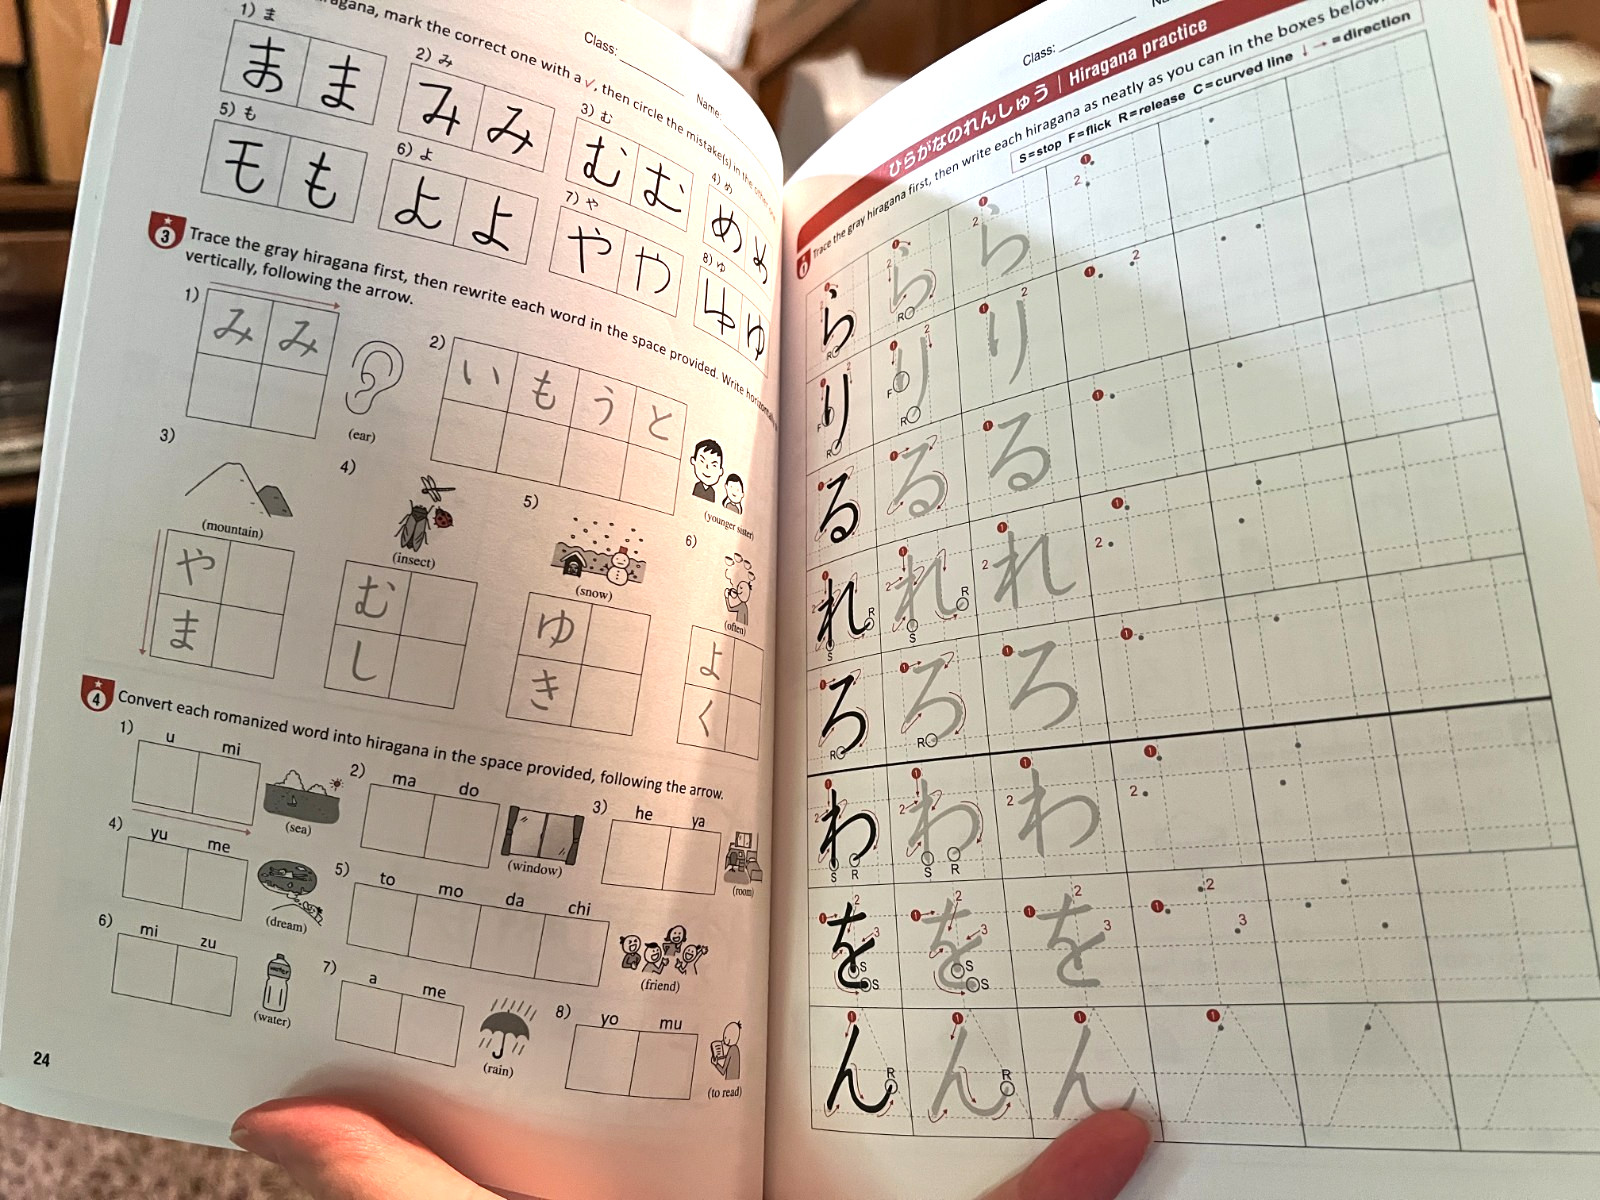 hiragana, mark the correct one with a ✓, then circle the mistake(s) in the other one.
Class:
Name:
1) ま
ま ま
2) み
み み
3) む
む む
4) め
め め
5) も
モ も
6) よ
よ よ
7) や
や や
8) ゆ
ゆ ゆ
3 Trace the gray hiragana first, then rewrite each word in the space provided. Write horizontally
vertically, following the arrow.
1)
み み
(ear)
2)
い も う と
(younger sister)
3)
(mountain)
や
ま
4)
(insect)
む
し
5)
(snow)
ゆ
き
6)
(often)
よ
く
4 Convert each romanized word into hiragana in the space provided, following the arrow.
1) u mi
(sea)
2) ma do
(window)
3) he ya
(room)
4) yu me
(dream)
5) to mo da chi
(friend)
6) mi zu
water
(water)
7) a me
(rain)
8) yo mu
(to read)
24
Class:
ひらがなのれんしゅう | Hiragana practice
1 Trace the gray hiragana first, then write each hiragana as neatly as you can in the boxes below.
S=stop F=flick R=release C=curved line ↓ → =direction
ら ら ら
り り り
る る る
れ れ れ
ろ ろ ろ
わ わ わ
を を を
ん ん ん